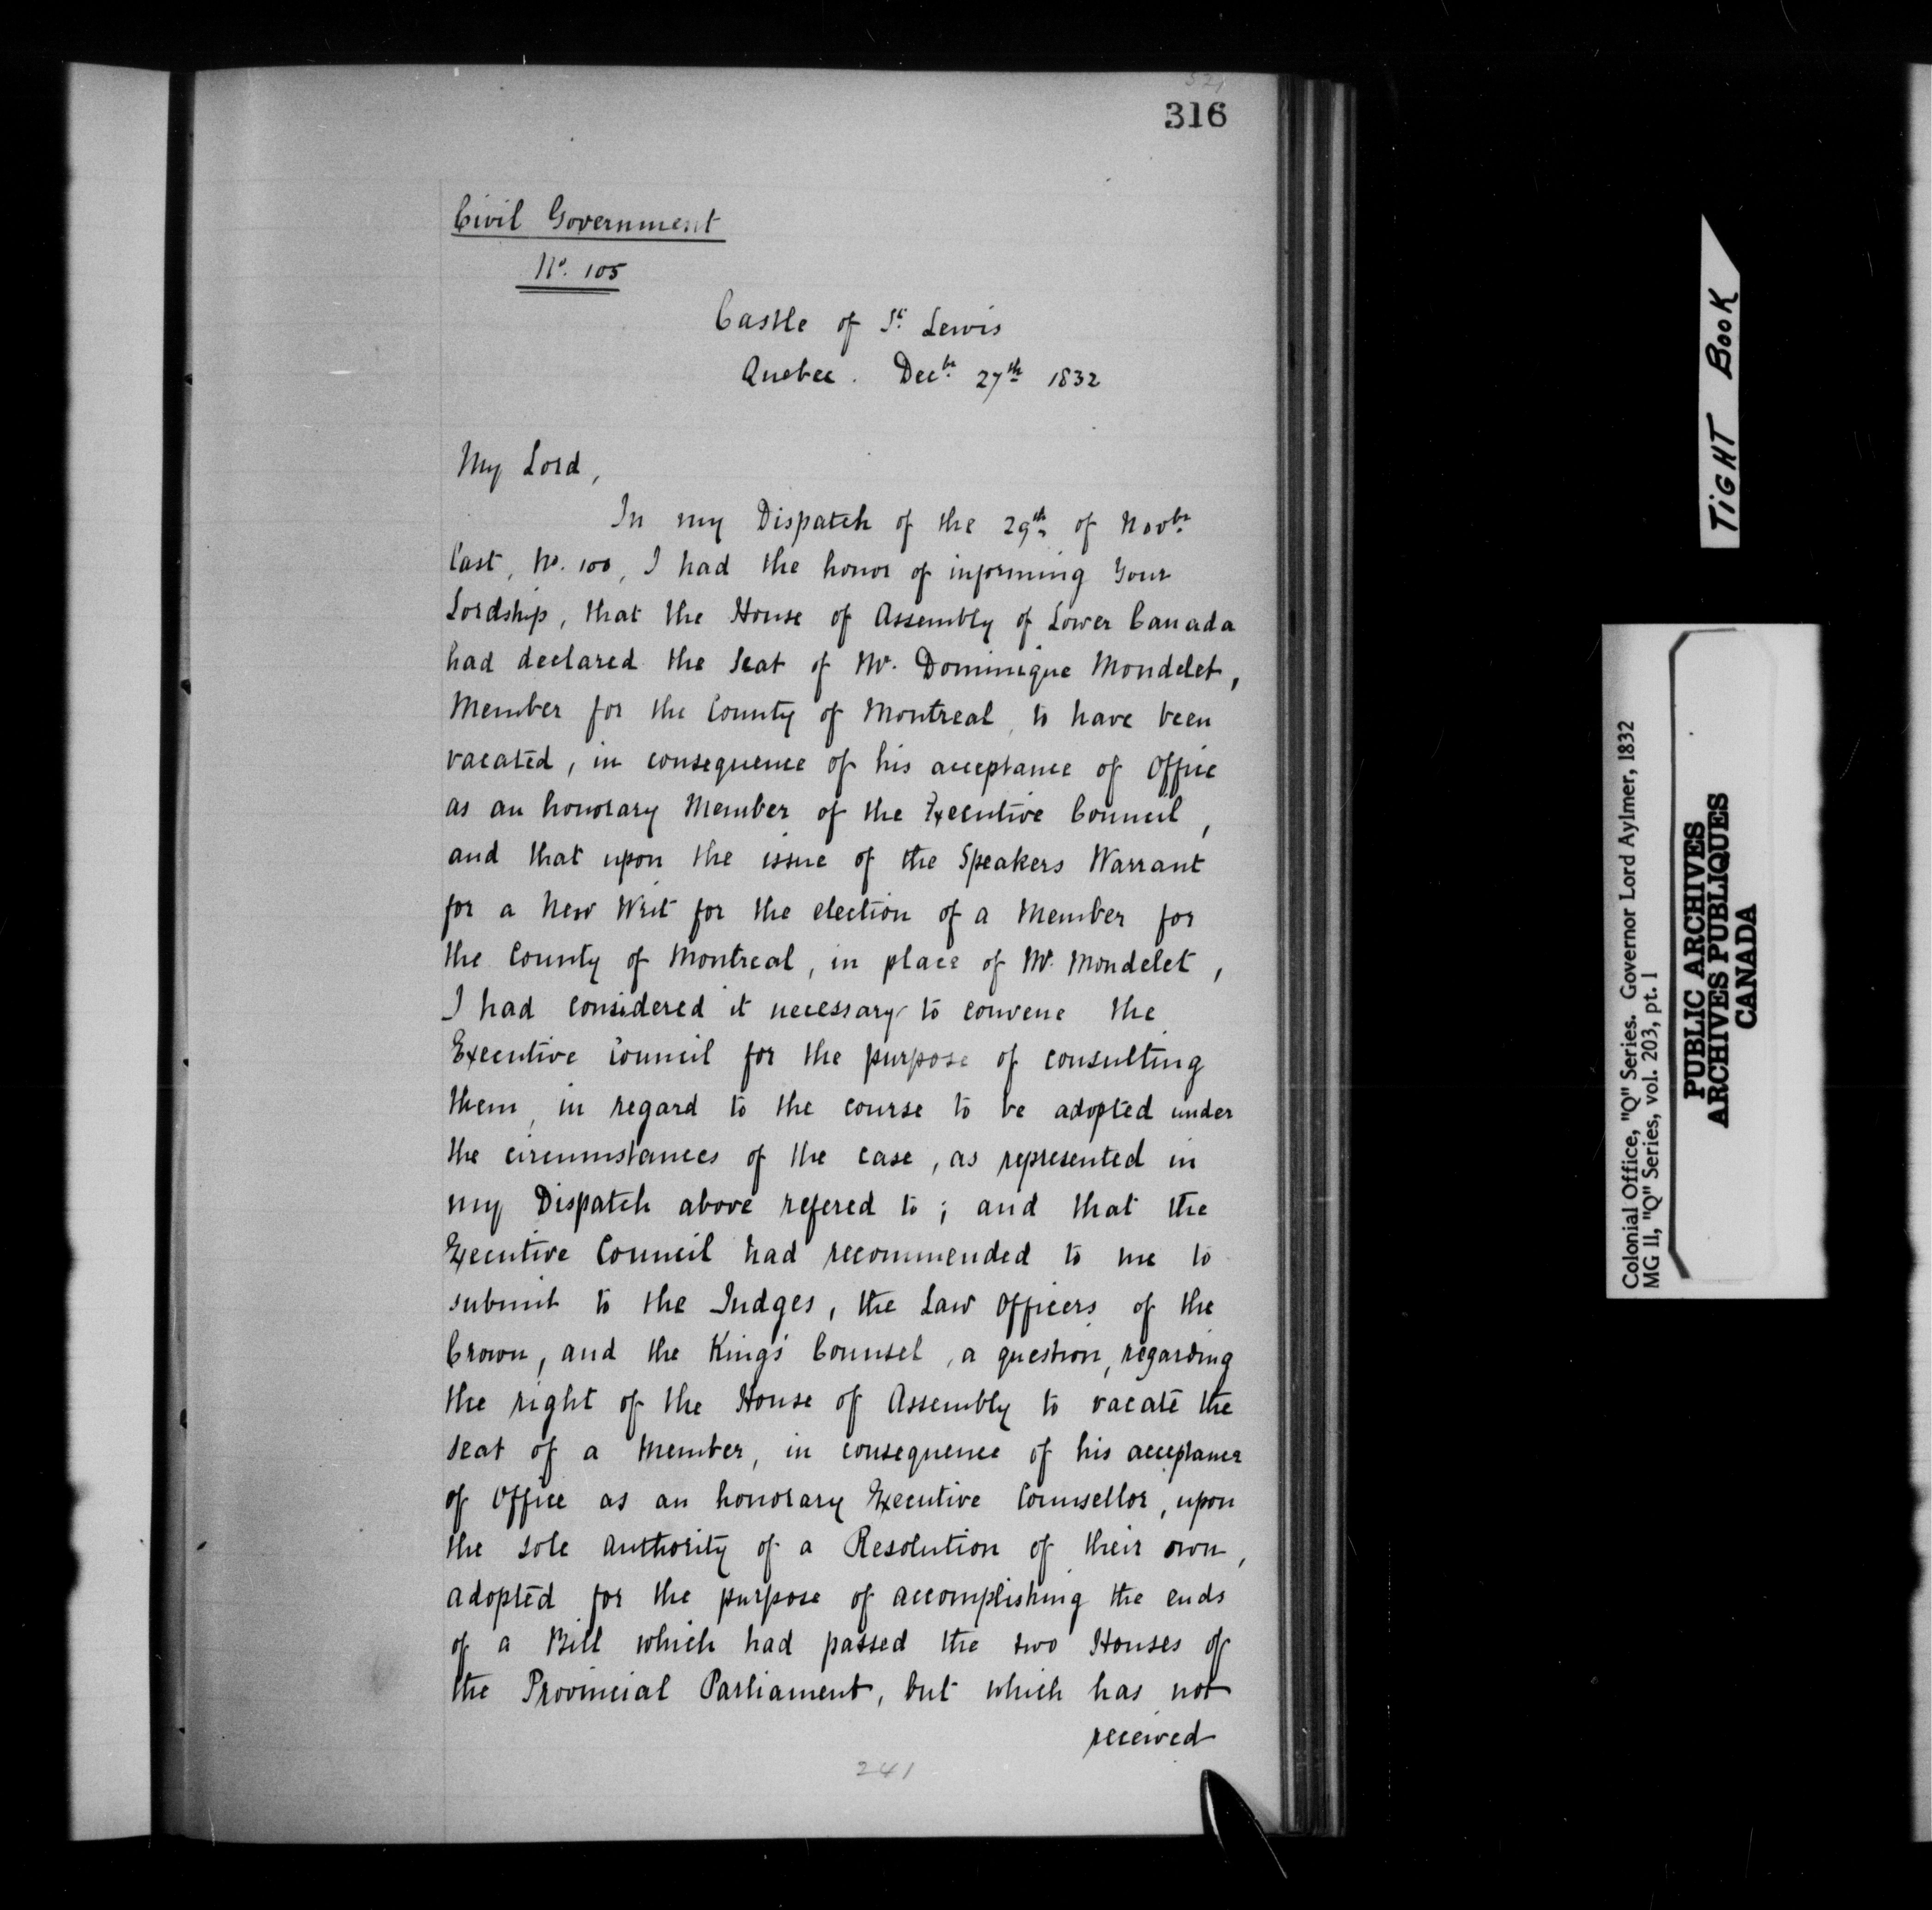 316
Civil Government
No. 105
Castle of St. Lewis
Quebec. Decbr 27th 1832
My Lord,
In my Dispatch of the 29th of Novbr
last, No. 100, I had the honor of informing Your
Lordship, that the House of Assembly of Lower Canada
had declared the Seat of Mr. Dominique Mondelet,
Member for the County of Montreal, to have been
vacated, in consequence of his acceptance of Office
as an honorary Member of the Executive Council,
and that upon the issue of the Speakers Warrant
for a New Writ for the election of a Member for
the County of Montreal, in place of Mr. Mondelet,
I had considered it necessary to convene the
Executive Council for the purpose of consulting
them, in regard to the course to be adopted under
the circumstances of the case, as represented in
my Dispatch above refered to; and that the
Executive Council had recommended to me to
submit to the Judges, the Law Officers of the
Crown, and the King's Counsel, a question, regarding
the right of the House of Assembly to vacate the
seat of a Member, in consequence of his acceptance
of Office as an honorary Executive Counsellor, upon
the sole authority of a Resolution of their own,
adopted for the purpose of accomplishing the ends
of a Bill which had passed the two Houses of
the Provincial Parliament, but which has not
received
241
TIGHT BOOK
Colonial Office, "Q" Series. Governor Lord Aylmer, 1832
MG 11, "Q" Series, vol. 203, pt. 1
PUBLIC ARCHIVES
ARCHIVES PUBLIQUES
CANADA